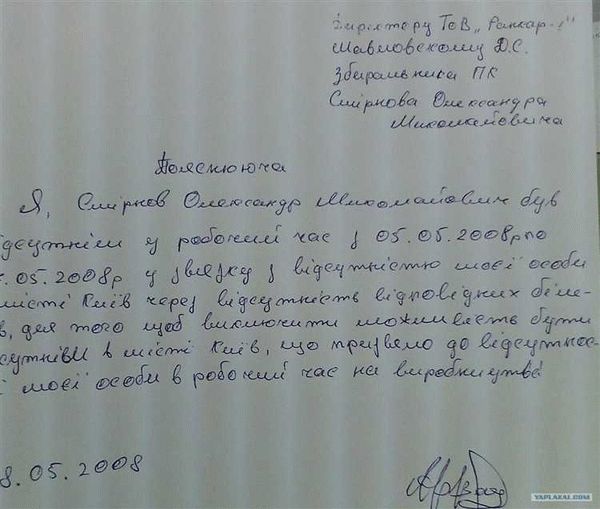 Директору ТОВ „Ранкар-
Шавловскому Д.С.
Збиральника ПК
Смірнова Олександра
Миколайовича
Пояснююча
Я, Смірнов Олександр Миколайович був
ідсутнім у робочий час з 05.05.2008р по
.05.2008р у звязку з відсутністю моєї особи
місті Київ через відсутність відповідних біле-
в, для того щоб виключити можливість бути
сутнім в місті Київ, що призвело до відсутнос-
і моєї особи в робочий час на виробництві
8.05.2008
YAPLAKAL.COM